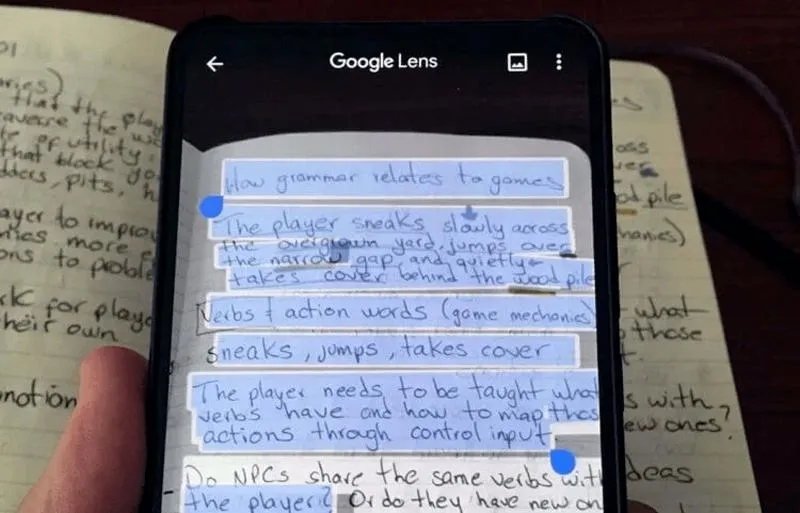 Google Lens
How grammar relates to games
The player sneaks slowly across
the overgrown yard, jumps over
the narrow gap and quietly
takes cover behind the wood pile
Verbs & action words (game mechanics)
sneaks, jumps, takes cover
The player needs to be taught what
verbs have and how to map thos
actions through control input
Do NPCs share the same verbs wit
the player? Or do they have new on
that the play
averse the
te of utility.
that block yo
dders, pits, h
ayer to improv
more
ons to proble
rk for playe
their own
notion
oss
od pile
hanics)
what
those
s with
ew ones?
deas